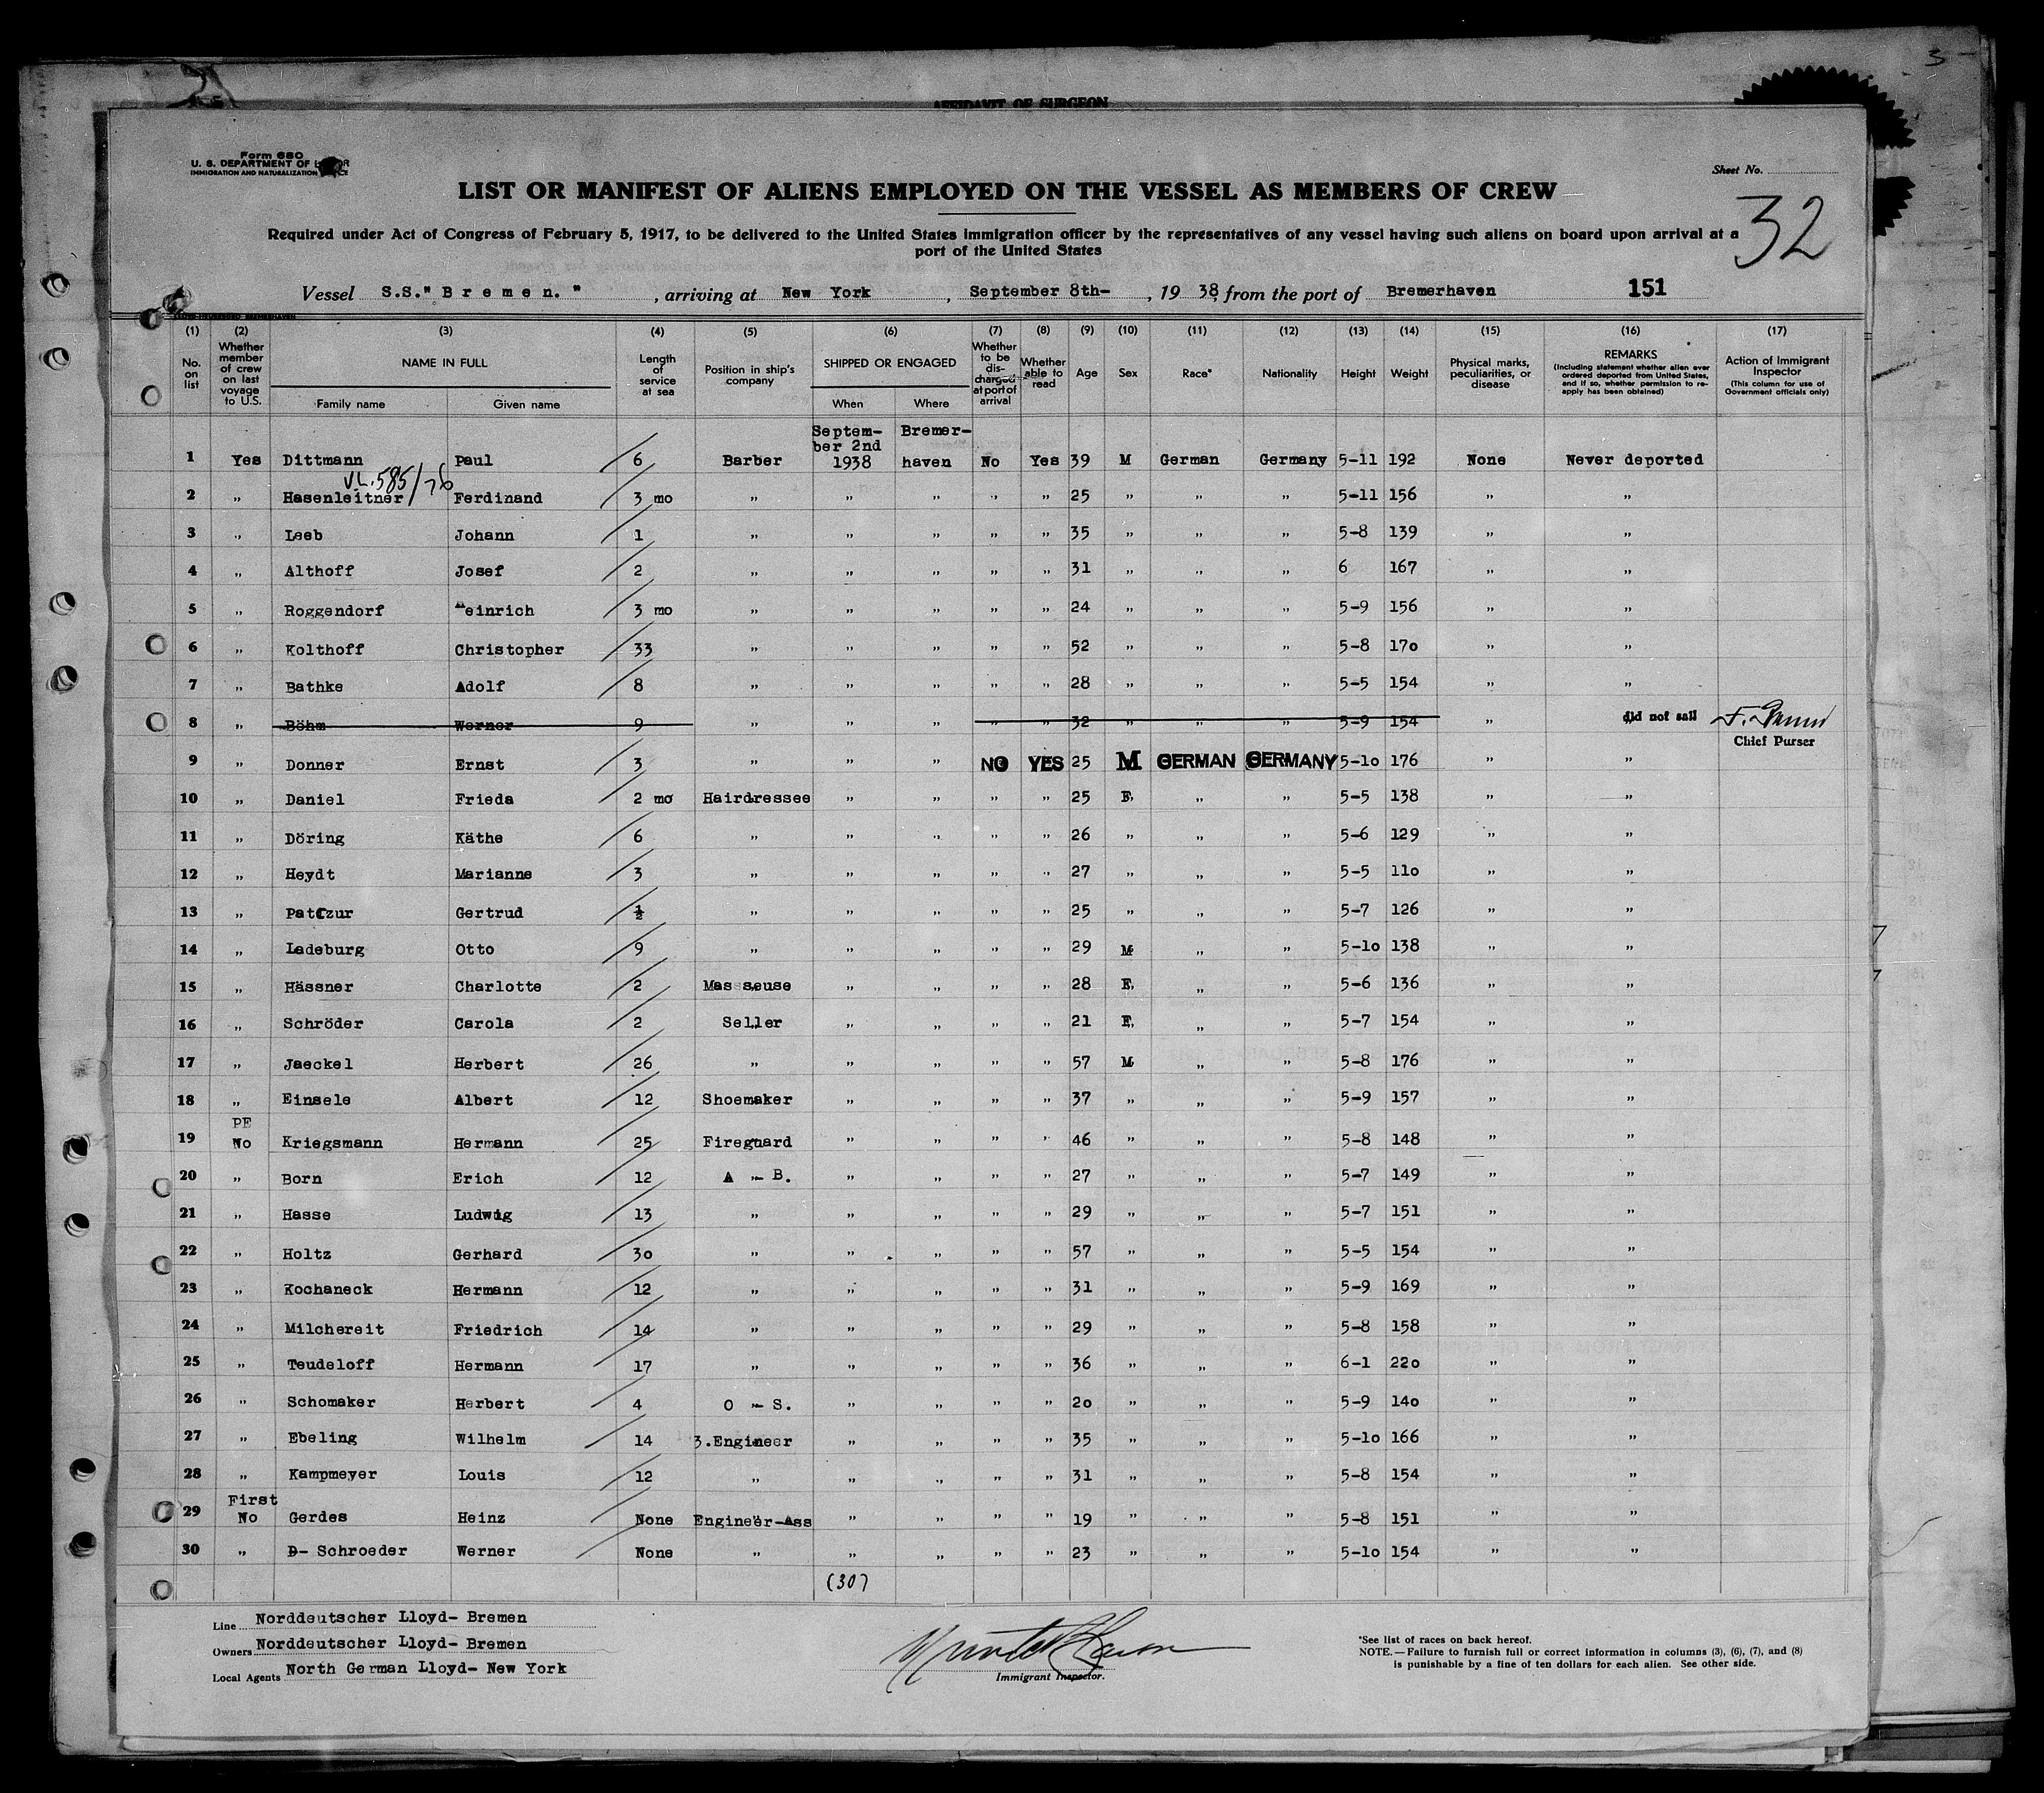 3
AFFIDAVIT OF SURGEON
Form 680
U. S. DEPARTMENT OF
IMMIGRATION AND NATURALIZATION
Sheet No.
32
LIST OR MANIFEST OF ALIENS EMPLOYED ON THE VESSEL AS MEMBERS OF CREW
Required under Act of Congress of February 5, 1917, to be delivered to the United States immigration officer by the representatives of any vessel having such aliens on board upon arrival at a
port of the United States
Vessel S.S." Bremen. " , arriving at New York , September 8th- , 19 38, from the port of Bremerhaven 151
(1) (2) (3) (4) (5) (6) (7) (8) (9) (10) (11) (12) (13) (14) (15) (16) (17)
No. on list Whether member of crew on last voyage to U.S. NAME IN FULL Family name Given name Length of service at sea Position in ship's company SHIPPED OR ENGAGED When Where Whether to be discharged at port of arrival Whether able to read Age Sex Race* Nationality Height Weight Physical marks, peculiarities, or disease REMARKS (Including statement whether alien ever ordered deported from United States, and if so, whether permission to re-apply has been obtained) Action of Immigrant Inspector (This column for use of Government officials only)
1 Yes Dittmann Paul 6 Barber September 2nd 1938 Bremer-haven No Yes 39 M German Germany 5-11 192 None Never deported
VL.585/76
2 " Hasenleitner Ferdinand 3 mo " " " " " 25 " " " 5-11 156 " "
3 " Leeb Johann 1 " " " " " 35 " " " 5-8 139 " "
4 " Althoff Josef 2 " " " " " 31 " " " 6 167 " "
5 " Roggendorf Heinrich 3 mo " " " " " 24 " " " 5-9 156 " "
6 " Kolthoff Christopher 33 " " " " " 52 " " " 5-8 170 " "
7 " Bathke Adolf 8 " " " " " 28 " " " 5-5 154 " "
8 " Böhm Werner 9 " " " " " 32 " " " 5-9 154 " did not sail
Chief Purser
9 " Donner Ernst 3 " " " NO YES 25 M GERMAN GERMANY 5-10 176 " "
10 " Daniel Frieda 2 mo Hairdressee " " " " 25 F " " 5-5 138 " "
11 " Döring Käthe 6 " " " " " 26 " " " 5-6 129 " "
12 " Heydt Marianne 3 " " " " " 27 " " " 5-5 110 " "
13 " Patczur Gertrud ½ " " " " " 25 " " " 5-7 126 " "
14 " Ladeburg Otto 9 " " " " " 29 M " " 5-10 138 " "
15 " Hässner Charlotte 2 Masseuse " " " " 28 F " " 5-6 136 " "
16 " Schröder Carola 2 Seller " " " " 21 F " " 5-7 154 " "
17 " Jaeckel Herbert 26 " " " " " 57 M " " 5-8 176 " "
18 " Einsele Albert 12 Shoemaker " " " " 37 " " " 5-9 157 " "
19 PF No Kriegsmann Hermann 25 Fireguard " " " " 46 " " " 5-8 148 " "
20 " Born Erich 12 A - B. " " " " 27 " " " 5-7 149 " "
21 " Hasse Ludwig 13 " " " " " 29 " " " 5-7 151 " "
22 " Holtz Gerhard 30 " " " " " 57 " " " 5-5 154 " "
23 " Kochaneck Hermann 12 " " " " " 31 " " " 5-9 169 " "
24 " Milchereit Friedrich 14 " " " " " 29 " " " 5-8 158 " "
25 " Teudeloff Hermann 17 " " " " " 36 " " " 6-1 220 " "
26 " Schomaker Herbert 4 O - S. " " " " 20 " " " 5-9 140 " "
27 " Ebeling Wilhelm 14 3.Engineer " " " " 35 " " " 5-10 166 " "
28 " Kampmeyer Louis 12 " " " " " 31 " " " 5-8 154 " "
29 First No Gerdes Heinz None Engineer-Ass " " " " 19 " " " 5-8 151 " "
30 " D- Schroeder Werner None " " " " " 23 " " " 5-10 154 " "
(30)
Line Norddeutscher Lloyd- Bremen
Owners Norddeutscher Lloyd- Bremen
Local Agents North German Lloyd- New York
Immigrant Inspector.
*See list of races on back hereof.
NOTE.—Failure to furnish full or correct information in columns (3), (6), (7), and (8)
is punishable by a fine of ten dollars for each alien. See other side.